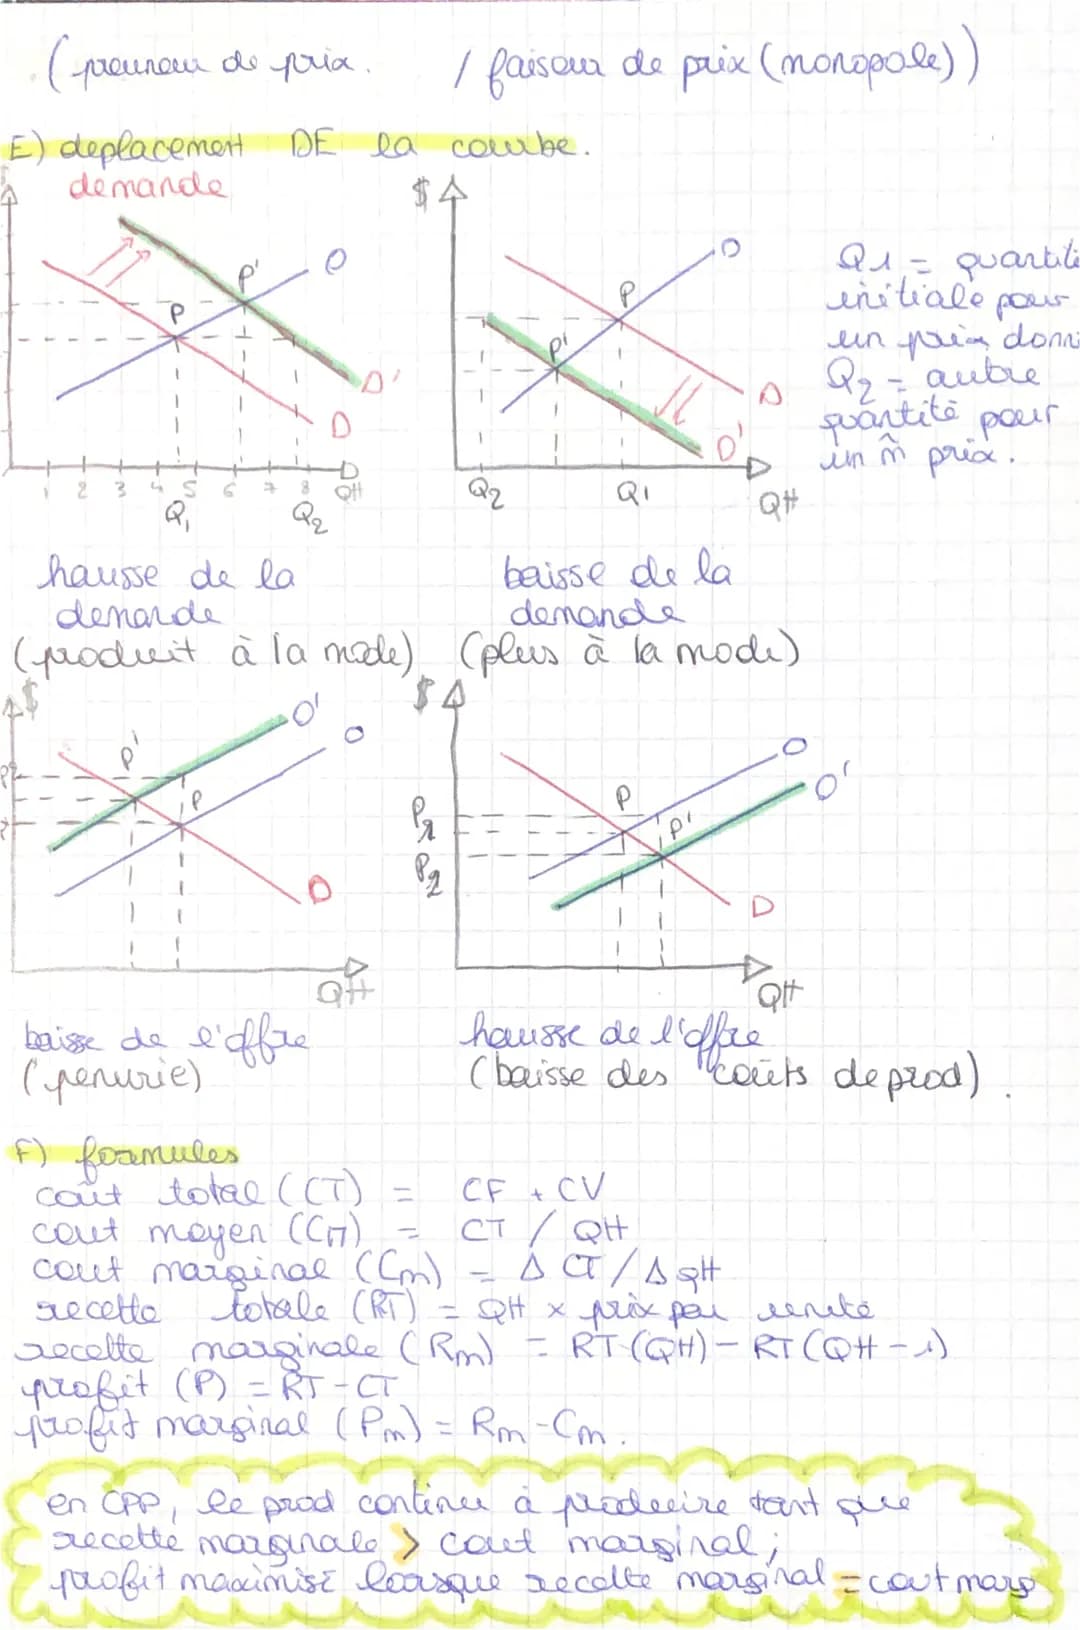 (preneur de prix. / faiseur de prix (monopole))
E) deplacement DE la courbe.
demande
$
P
P'
O
D'
D
1 2 3 4 5 6 7 8 QH
Q1 Q2
$
O
P
P'
D
D'
Q2 Q1 QH
Q1 = quantité
initiale pour
un prix donn
Q2 = autre
quantité pour
un m̂ prix.
hausse de la
demande
(produit à la mode)
baisse de la
demande
(plus à la mode)
$
O'
O
P'
P
D
QH
$
O
O'
P
P'
P1
P2
D
QH
baisse de l'offre
(penurie)
hausse de l'offre
(baisse des coûts de prod).
F) formules
coût total (CT) = CF + CV
cout moyen (CM) = CT / QH
cout marginal (Cm) = Δ CT / Δ QH
recette totale (RT) = QH x prix par unité
recette marginale (Rm) = RT (QH) - RT (QH - 1)
profit (P) = RT - CT
profit marginal (Pm) = Rm - Cm.
en CPP, le prod continue à produire tant que
recette marginale > cout marginal ;
profit maximisé lorsque recette marginal = cout marg